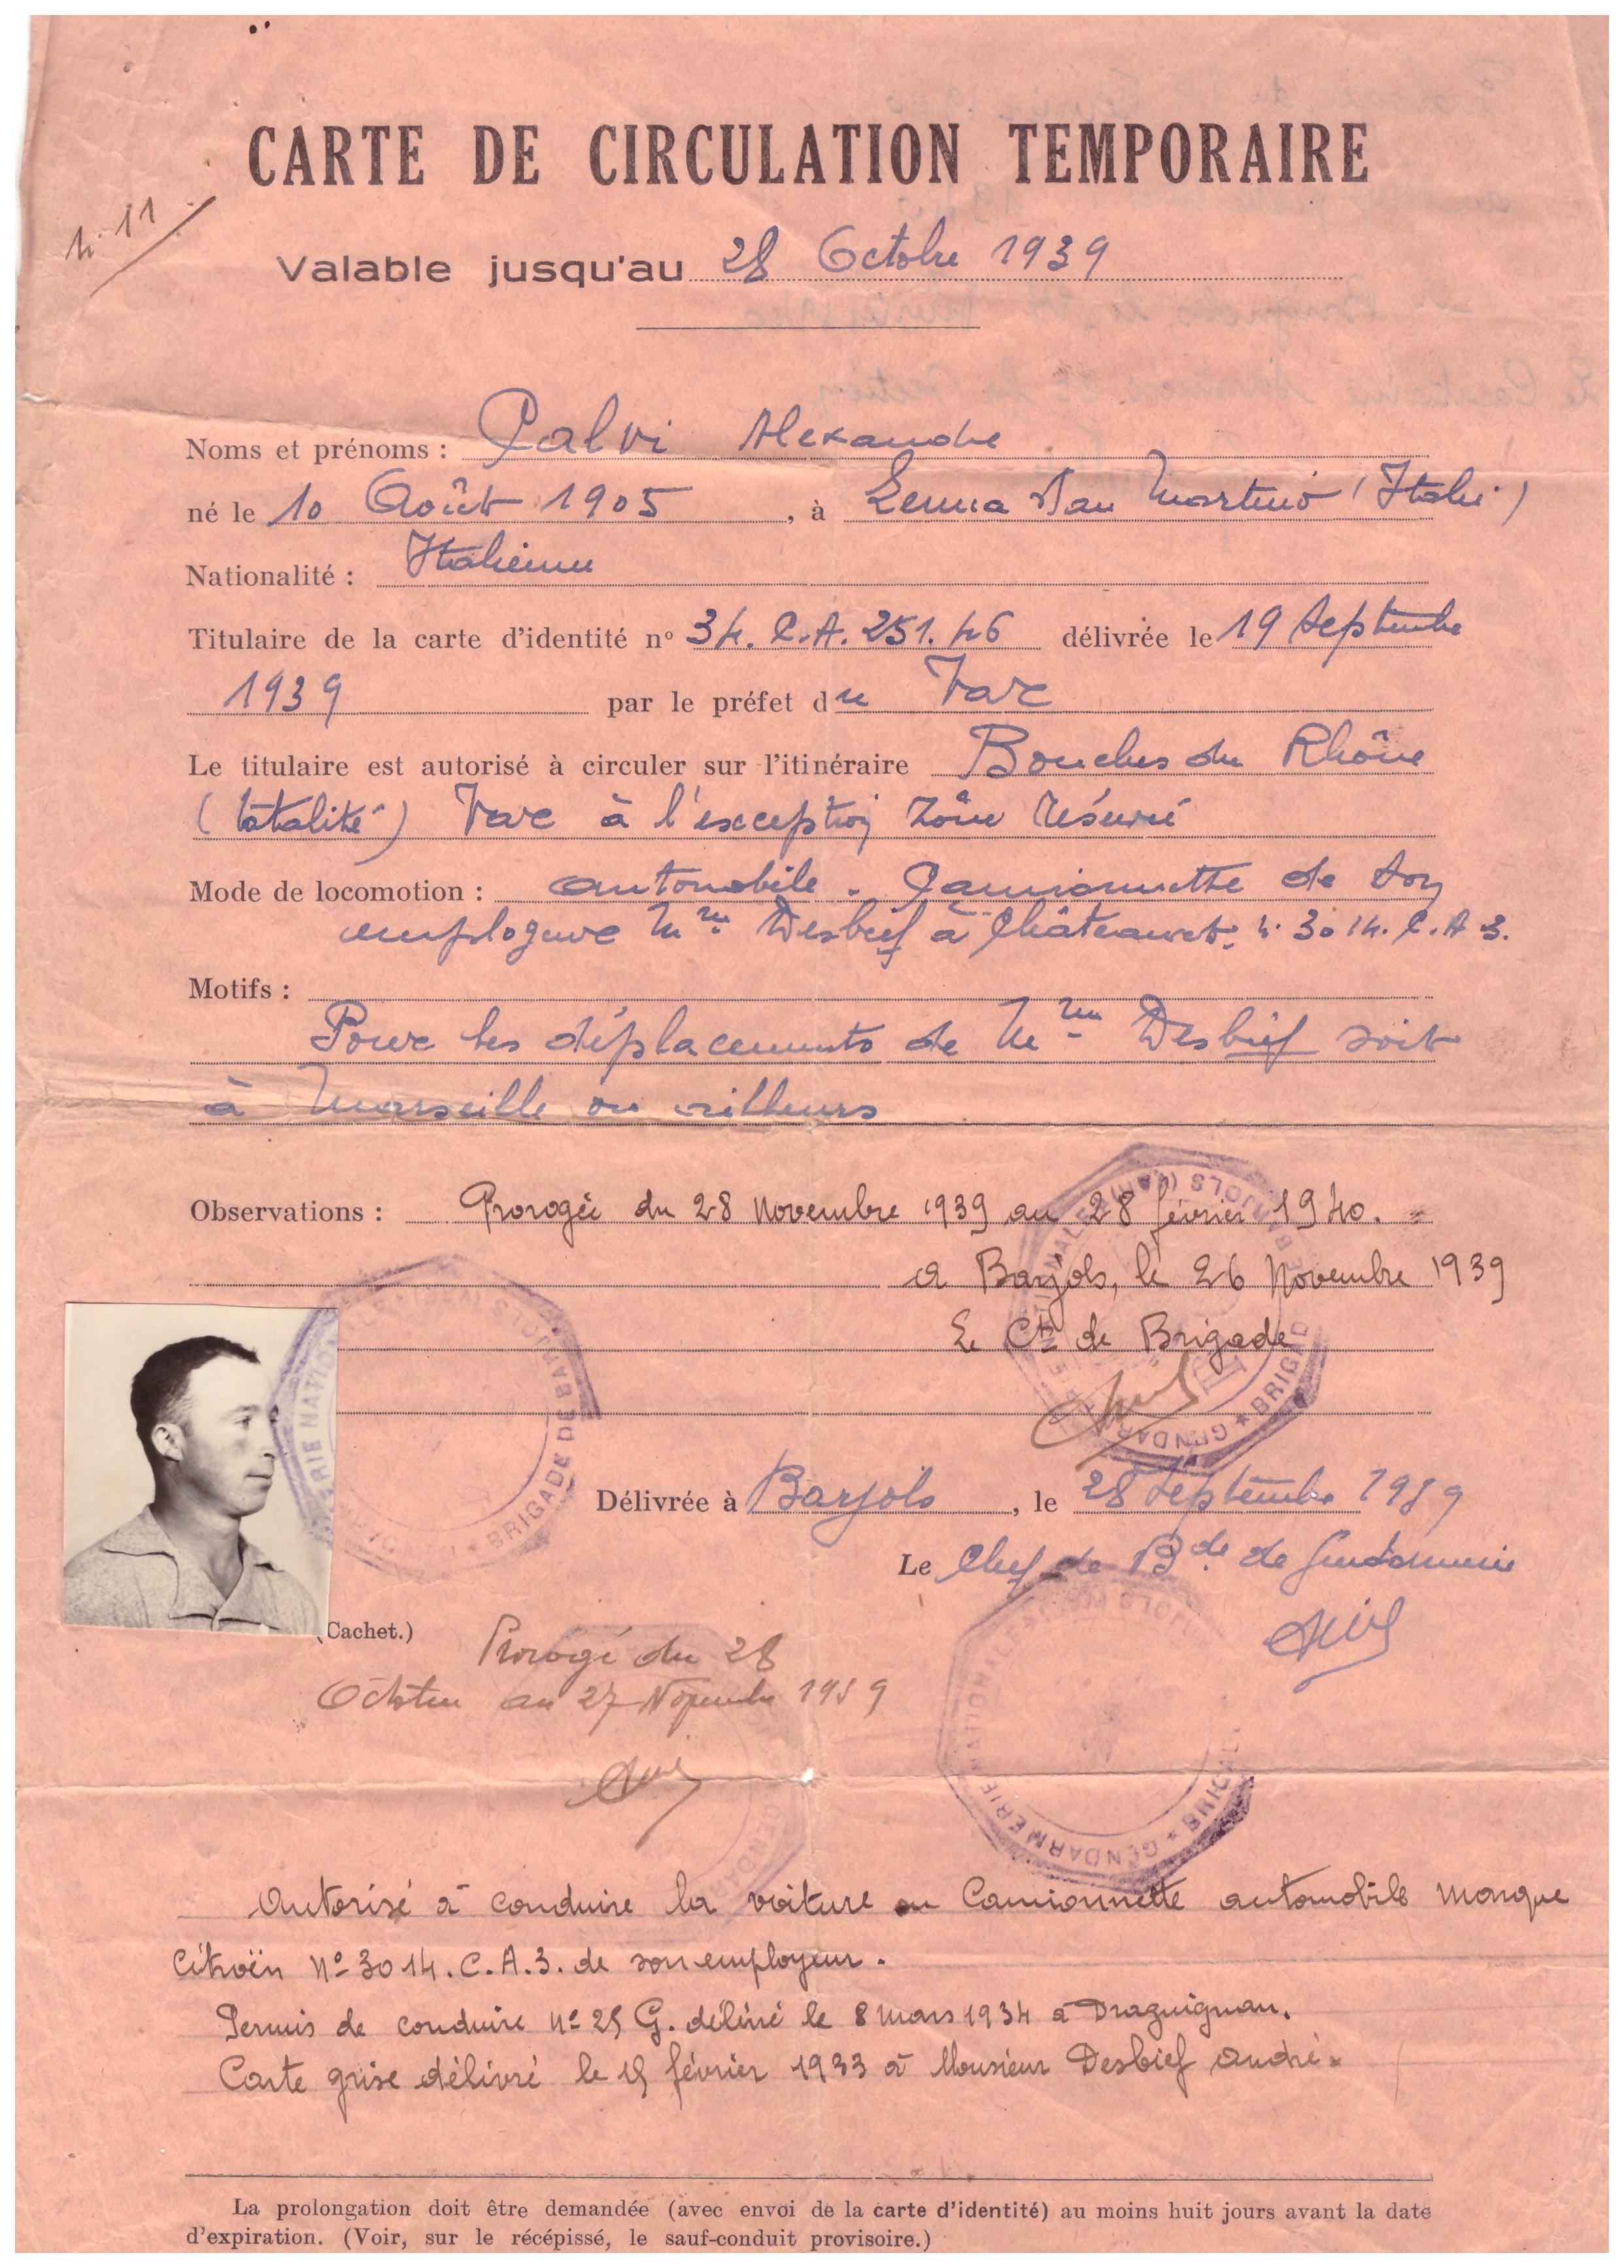 CARTE DE CIRCULATION TEMPORAIRE
n° 11
Valable jusqu'au 28 Octobre 1939
Noms et prénoms : Palvi Alexandre
né le 10 Août 1905, à Lenna San Martino (Italie)
Nationalité : Italienne
Titulaire de la carte d'identité n° 34. C.A. 251.46 délivrée le 19 Septembre
1939 par le préfet du Var
Le titulaire est autorisé à circuler sur l'itinéraire Bouches du Rhône
(totalité) Var à l'exception zône réservé
Mode de locomotion : automobile. Camionnette de son
employeur Mme Desbief à Châteauvert. n° 3014. C.A 3.
Motifs :
Pour les déplacements de Mme Desbief soit
à Marseille ou ailleurs
Observations : Prorogée du 28 Novembre 1939 au 28 février 1940.
a Barjols, le 26 Novembre 1939
Le Ct de Brigade
GENDARMERIE NATIONALE BARJOLS (VAR) ★ BRIGADE
GENDARMERIE NATIONALE ★ BRIGADE DE BARJOLS
Délivrée à Barjols, le 28 Septembre 1939
Le Chef de Bde de Gendarmerie
(Cachet.)
Prorogé du 28
Octobre au 27 Novembre 1939
GENDARMERIE NATIONALE ★ BRIGADE
Autorisé à conduire la voiture ou Camionnette automobile marque
Citroën N° 3014. C.A.3. de son employeur.
Permis de conduire n° 25 G. délivré le 8 mars 1934 à Draguignan.
Carte grise délivré le 15 février 1933 à Monsieur Desbief André.
La prolongation doit être demandée (avec envoi de la carte d'identité) au moins huit jours avant la date
d'expiration. (Voir, sur le récépissé, le sauf-conduit provisoire.)